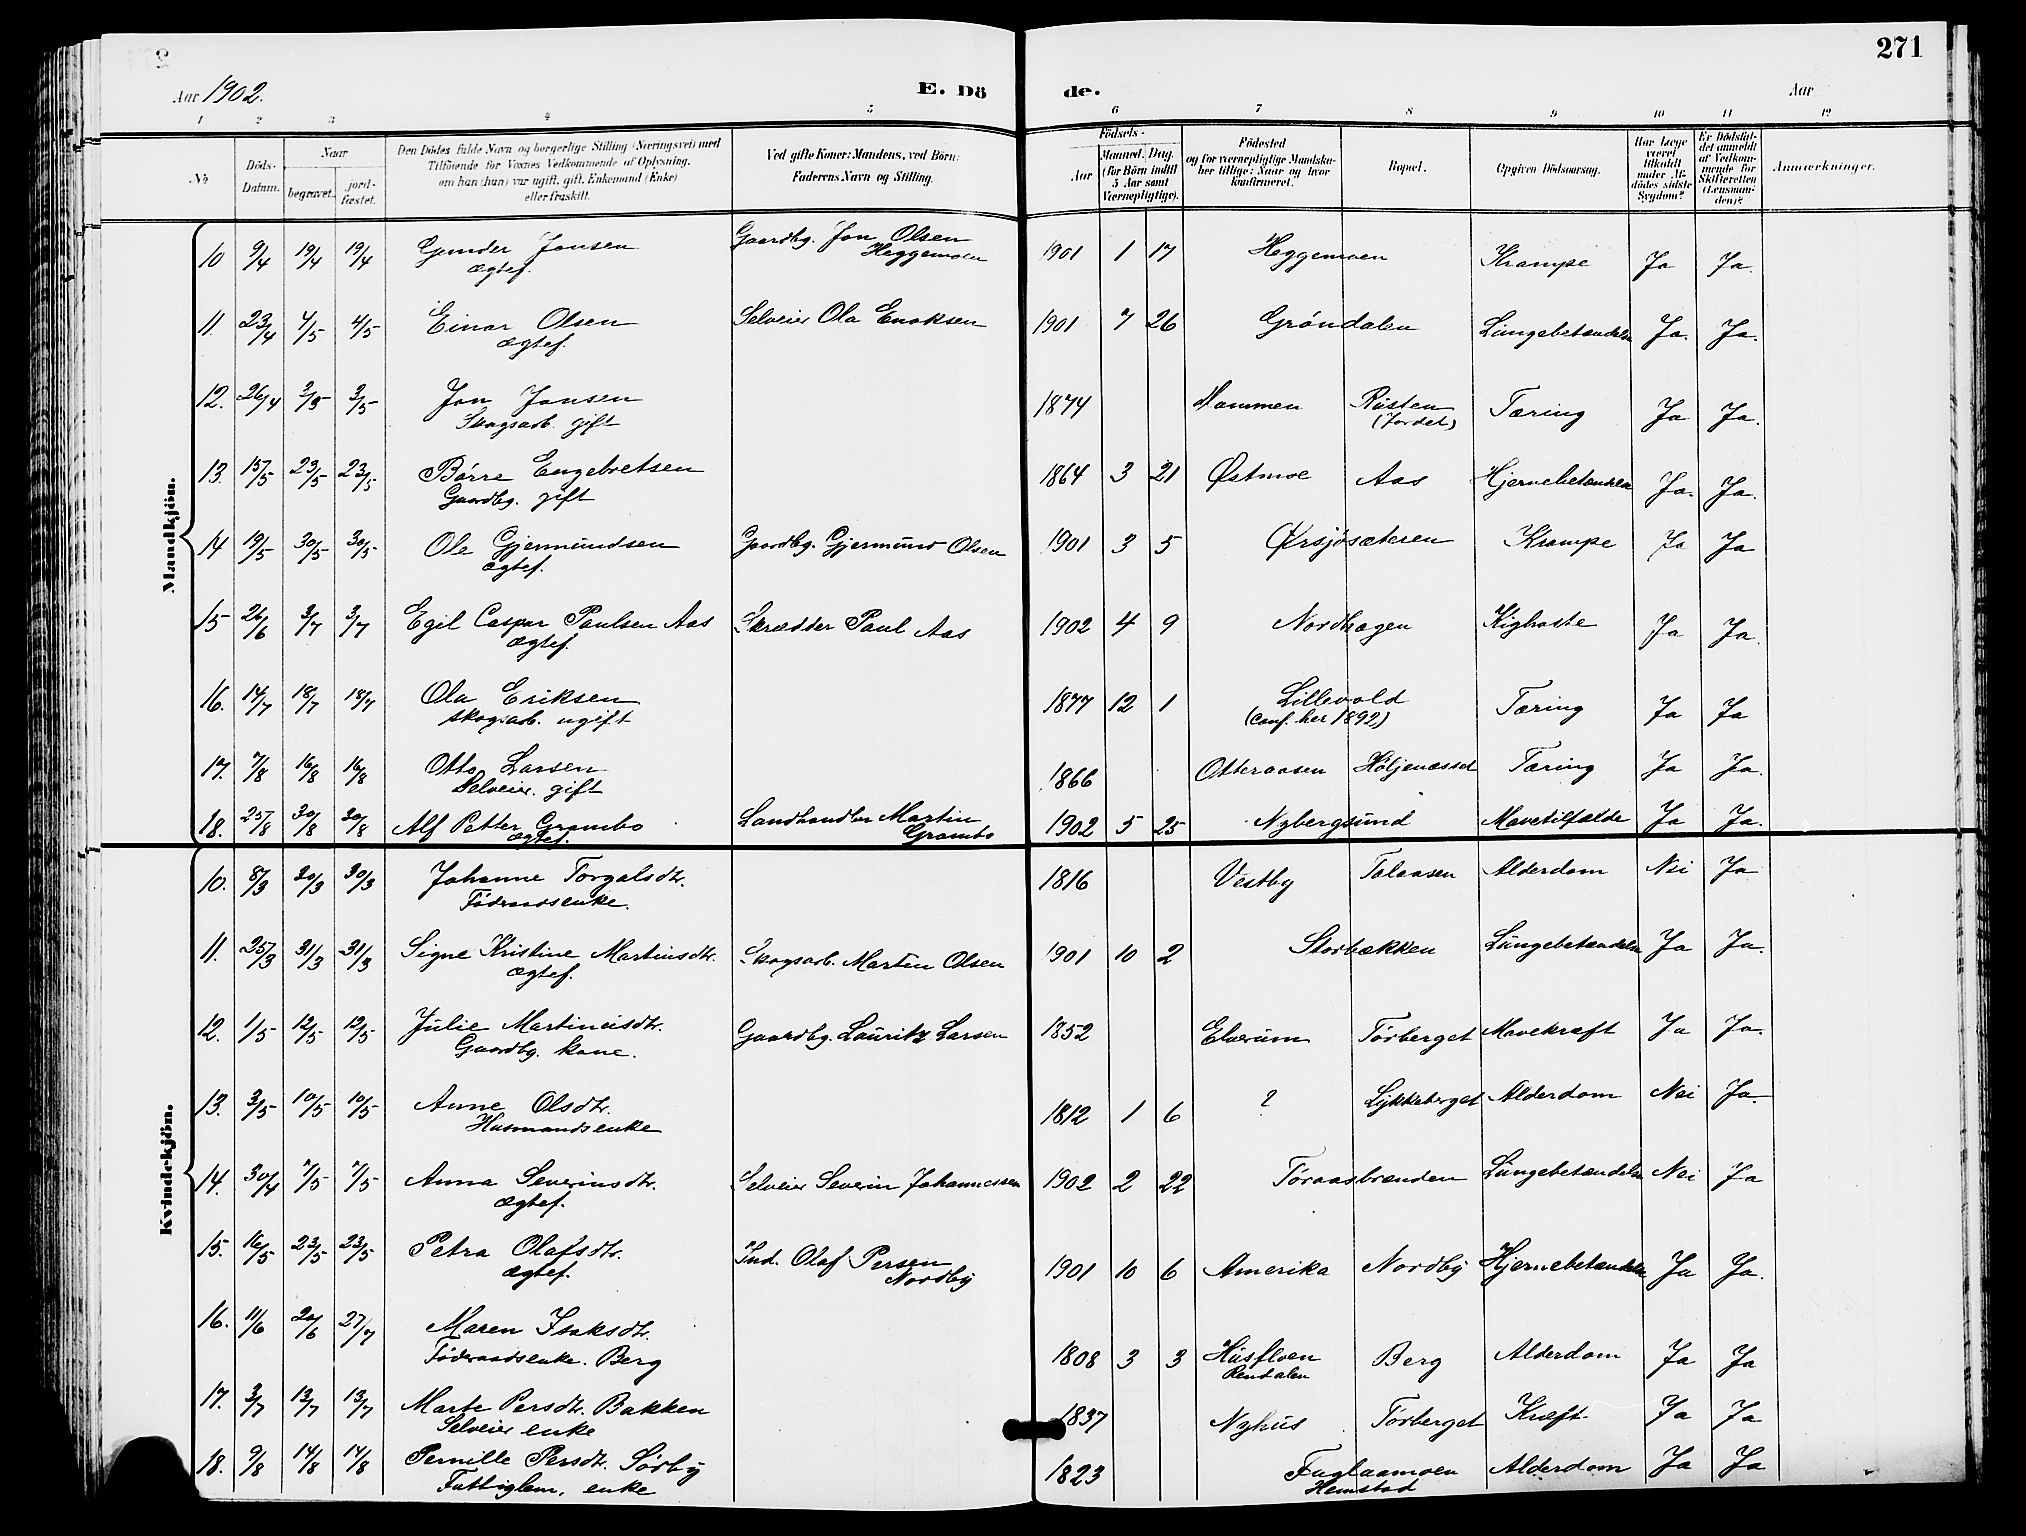 Aar 1902. E. Dö de. Aar 271
1 2 3 4 5 6 7 8 9 10 11 12
No. Döds-Datum. Naar begravet. jordfæstet. Den Dödes fulde Navn og borgerlige Stilling (Næringsvei) med Tilföiende for Voxnes Vedkommende af Oplysning, om han (hun) var ugift, gift, Enkemand (Enke) eller fraskilt. Ved gifte Koner: Mandens, ved Börn: Faderens Navn og Stilling. Födsels- Aar Maaned. Dag. (for Börn indtil 5 Aar samt Værnepligtige). Födested og for værnepligtige Mandskaber tillige: Naar og hvor konfirmeret. Bopæl. Opgiven Dödsaarsag. Har Læge været tilkaldt under Afdödes sidste Sygdom? Er Dödsfaldet anmeldt af Vedkommende for Skifteretten (Lensmanden)? Anmærkninger.
Mandkjön.
10 9/4 19/4 19/4 Gunder Jonsen Gaardbg. Jon Olsen 1901 1 17 Heggemoen Krampe Ja Ja.
ægtef. Heggemoen
11 23/4 4/5 4/5 Einar Olsen Selveier Ola Enoksen 1901 7 26 Gröndalen Lungebetændelse Ja. Ja.
ægtef.
12. 26/4 3/5 3/5 Jon Jonsen 1874 Mommen Rusten Tæring Ja Ja.
Skogsarb. gift (Jordet)
13. 15/5 23/5 23/5 Börre Engebretsen 1864 3 21 Østmoe Aas Hjernebetændelse Ja. Ja.
Gaardbg. gift
14 19/5 30/5 30/5 Ole Gjermundsen Gaardbg. Gjermund Olsen 1901 3 5 Ørsjösæteren Krampe Ja Ja
ægtef.
15 26/6 3/7 3/7 Egil Caspar Paulsen Aas Skrædder Paul Aas 1902 4 9 Nordhagen Kighoste Ja Ja.
ægtef.
16. 14/7 18/7 18/7 Ola Eriksen 1877 12 1 Lillevold Tæring Ja Ja
skogsarb. ugift (conf. her 1892)
17. 7/8 16/8 16/8 Otto Larsen 1866 Otteraasen Höljenæsset Tæring Ja Ja.
Selveier. gift
18. 25/8 30/8 30/8 Alf Petter Grambo Landhandler Martin 1902 5 25 Nybergsund Mavetilfælde Ja Ja.
ægtef. Grambo
Kvindekjön.
10. 8/3 30/3 30/3 Johanne Torgalsdtr. 1816 Vestby Talaasen Alderdom Nei Ja
Föderaadsenke.
11. 25/3 31/3 31/3 Signe Kristine Martinsdtr. Skogsarb. Martin Olsen 1901 10 2 Storbækken Lungebetændelse Ja Ja.
ægtef.
12. 1/5 12/5 12/5 Julie Martineisdtr. Gaardbg. Lauritz Larsen 1852 Elverum Törberget Mavekræft Ja Ja.
Gaardbg. kone.
13. 3/5 10/5 10/5 Anne Olsdtr. 1812 1 6 ? Lykkeberget Alderdom Nei Ja
Husmandsenke
14. 30/4 7/5 7/5 Anna Severinsdtr. Selveier Severin Johannessen 1902 2 22 Töraasbrænden Lungebetændelse Nei Ja
ægtef.
15. 16/5 23/5 23/5 Petra Olafsdtr. Ind. Olaf Persen 1901 10 6 Amerika Nordby Hjernebetændelse Ja Ja.
ægtef. Nordby
16. 11/6 20/6 27/7 Maren Isaksdtr.
Föderaadsenke. Berg 1808 3 3 Husfloen Berg Alderdom Ja Ja
Rendalen
17. 3/7 13/7 13/7 Marte Persdtr. Bakken 1837 Nyhus Törberget Kræft. Ja Ja
Selveier enke
18. 9/8 14/8 14/8 Pernille Persdtr. Sörby 1823 Fuglaamoen Alderdom Ja Ja
Fattiglem, enke Hemstad